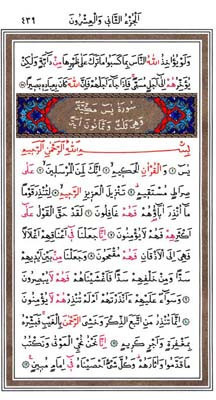 الجزء الثاني والعشرون ٤٣٩
ولو يؤاخذ الله الناس بما كسبوا ما ترك على ظهرها من دابة ولكن
يؤخرهم إلى أجل مسمى فإذا جاء أجلهم فإن الله كان بعباده بصيرا
سورة يس مكية
وهي ثلاث وثمانون آية
بسم الله الرحمن الرحيم
يس والقرآن الحكيم إنك لمن المرسلين على
صراط مستقيم تنزيل العزيز الرحيم لتنذر قوما
ما أنذر آباؤهم فهم غافلون لقد حق القول على
أكثرهم فهم لا يؤمنون إنا جعلنا في أعناقهم أغلالا
فهي إلى الأذقان فهم مقمحون وجعلنا من بين أيديهم
سدا ومن خلفهم سدا فأغشيناهم فهم لا يبصرون
وسواء عليهم أأنذرتهم أم لم تنذرهم لا يؤمنون
إنما تنذر من اتبع الذكر وخشي الرحمن بالغيب فبشره
بمغفرة وأجر كريم إنا نحن نحي الموتى ونكتب
ما قدموا وآثارهم وكل شيء أحصيناه في إمام مبين